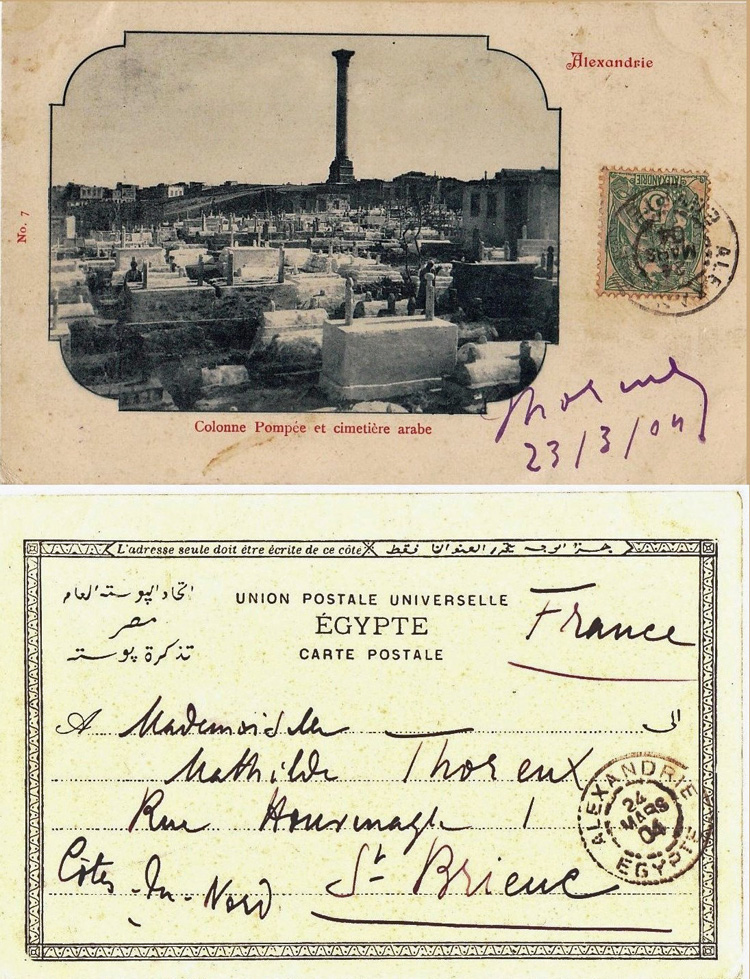 Alexandrie
No. 7
ALEXANDRIE
5
24
MARS
04
Colonne Pompée et cimetière arabe
23/3/04
L'adresse seule doit être écrite de ce côté
اتحاد البوسته العام
مصر
تذكرة بوسته
UNION POSTALE UNIVERSELLE
ÉGYPTE
CARTE POSTALE
France
A Mademoiselle
الى
Mathilde Thoreux
Rue 1
Côtes-du-Nord St-Brieuc
ALEXANDRIE
24
MARS
04
EGYPTE